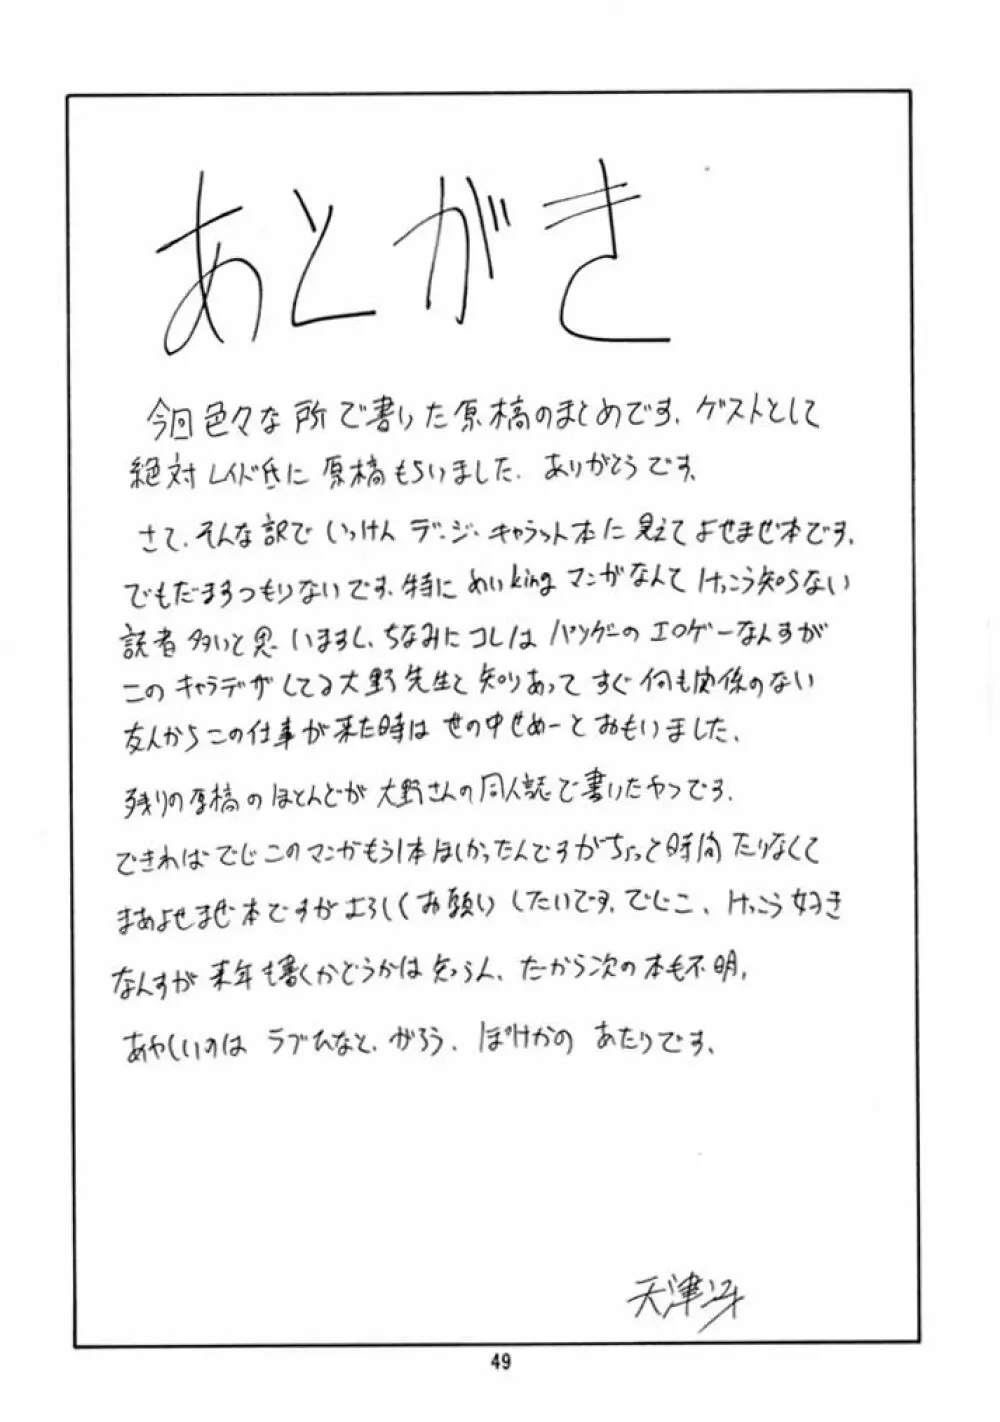 あとがき
今回色々な所で書いた原稿のまとめです。ゲストとして
絶対レイド氏に原稿もらいました。ありがとうです。
さて、そんな訳でいっけんデ・ジ・キャラット本に見えてよせまぜ本です。
でもだますつもりないです、特にめいkingマンガなんてけっこう知らない
読者多いと思いますし、ちなみにコレはパソゲーのエロゲーなんすが
このキャラデザしてる大野先生と知りあってすぐ何も関係のない
友人からこの仕事が来た時は世の中せめーとおもいました、
残りの原稿のほとんどが大野さんの同人誌で書いたヤツです。
できればでじこのマンガもう1本ほしかったんですがちょっと時間たりなくて
まあよせまぜ本ですがよろしくお願いしたいです。でじこ、けっこう好き
なんすが来年も書くかどうかは知らん、だから次の本も不明。
あやしいのはラブひなと、がろう、ぽけかのあたりです、
天津冴
49